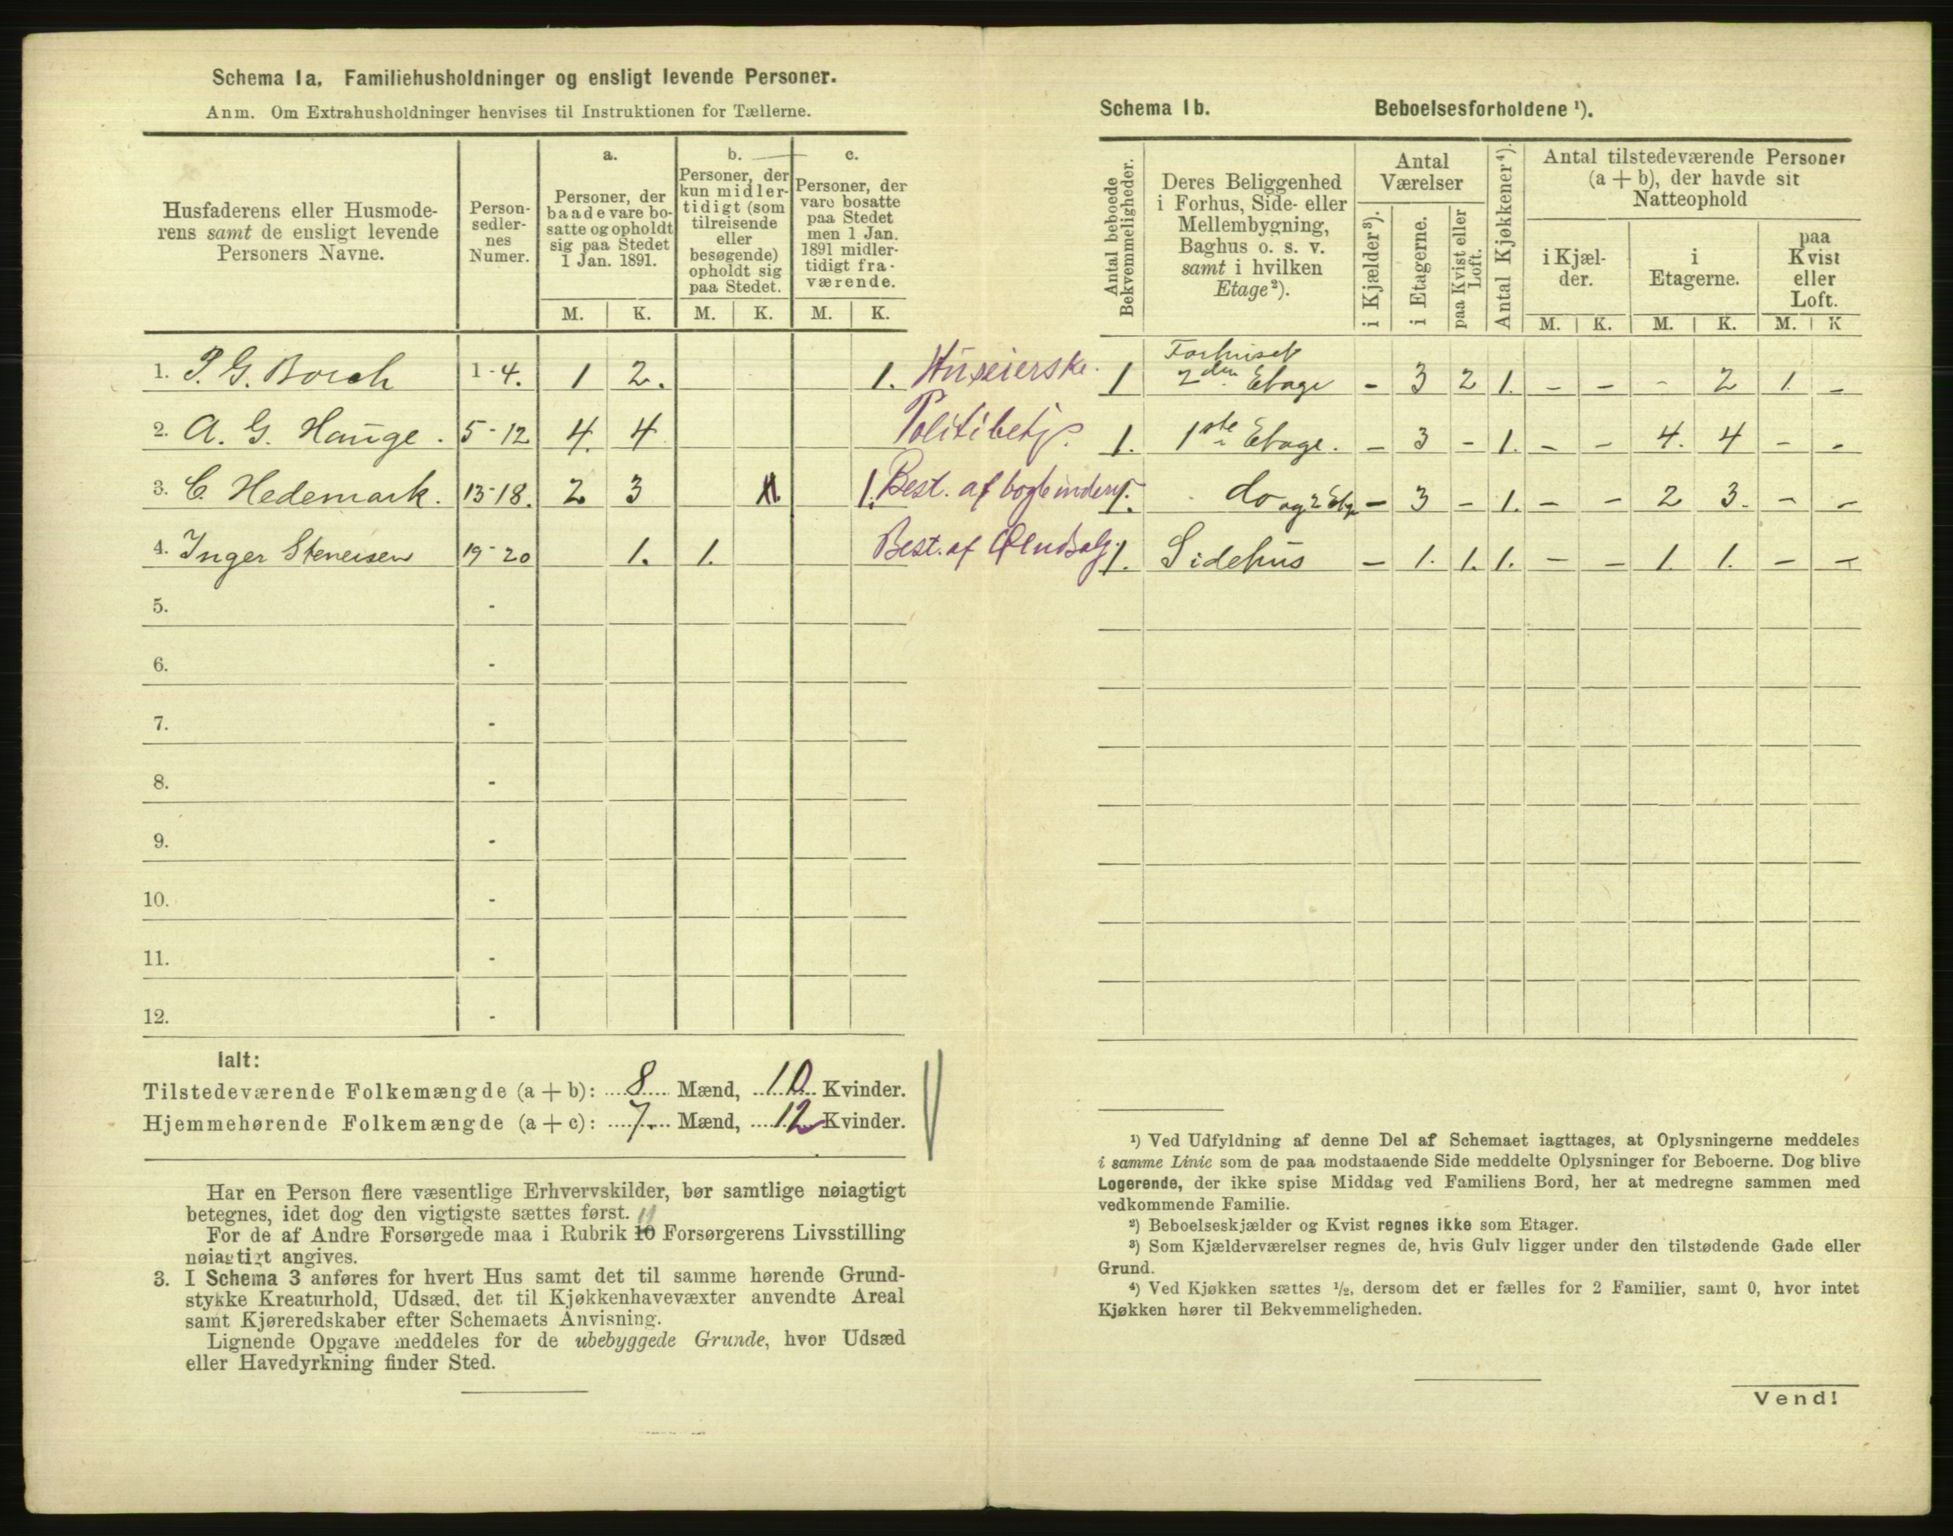 Schema 1a. Familiehusholdninger og ensligt levende Personer.
Anm. Om Extrahusholdninger henvises til Instruktionen for Tællerne.
Husfaderens eller Husmode-
rens samt de ensligt levende
Personers Navne.
Person-
sedler-
nes
Numer.
a.
Personer, der
baade vare bo-
satte og opholdt
sig paa Stedet
1 Jan. 1891.
b.
Personer, der
kun midler-
tidigt (som
tilreisende
eller
besøgende)
opholdt sig
paa Stedet.
c.
Personer, der
vare bosatte
paa Stedet
men 1 Jan.
1891 midler-
tidigt fra-
værende.
M. K. M. K. M. K.
1. P. G. Borch 1-4. 1 2. 1. Huseierske.
2. A. G. Hauge. 5-12 4. 4 Politibetj.
3. C. Hedemark. 13-18. 2 3 1. Best. af bogbinderi.
4. Inger Steneisen 19-20 1. 1. Best. af Øludsalg.
5. -
6. -
7. -
8. -
9. -
10. -
11. -
12. -
Ialt:
Tilstedeværende Folkemængde (a + b): 8 Mænd, 10 Kvinder.
Hjemmehørende Folkemængde (a + c): 7. Mænd, 12 Kvinder.
Har en Person flere væsentlige Erhvervskilder, bør samtlige nøiagtigt
betegnes, idet dog den vigtigste sættes først.
For de af Andre Forsørgede maa i Rubrik 10 11 Forsørgerens Livsstilling
nøiagtigt angives.
3. I Schema 3 anføres for hvert Hus samt det til samme hørende Grund-
stykke Kreaturhold, Udsæd, det til Kjøkkenhavevæxter anvendte Areal
samt Kjøreredskaber efter Schemaets Anvisning.
Lignende Opgave meddeles for de ubebyggede Grunde, hvor Udsæd
eller Havedyrkning finder Sted.
Schema 1b. Beboelsesforholdene ¹).
Antal beboede
Bekvemmeligheder.
Deres Beliggenhed
i Forhus, Side- eller
Mellembygning,
Baghus o. s. v.
samt i hvilken
Etage²).
Antal
Værelser
i Kjælder³).
i Etagerne.
paa Kvist eller
Loft.
Antal Kjøkkener⁴).
Antal tilstedeværende Personer
(a + b), der havde sit
Natteophold
i Kjæl-
der.
i
Etagerne.
paa
Kvist
eller
Loft.
M. K. M. K. M. K
1 Forhuset
2den Etage - 3 2 1. - - - 2 1. -
1. 1ste Etage. - 3 - 1. - - 4. 4 - -
1. do og 2 Etg - 3 - 1. - - 2 3. - -
1. Sidehus - 1. 1. 1. - - 1. 1. - -
¹) Ved Udfyldning af denne Del af Schemaet iagttages, at Oplysningerne meddeles
i samme Linie som de paa modstaaende Side meddelte Oplysninger for Beboerne. Dog blive
Logerende, der ikke spise Middag ved Familiens Bord, her at medregne sammen med
vedkommende Familie.
²) Beboelseskjælder og Kvist regnes ikke som Etager.
³) Som Kjælderværelser regnes de, hvis Gulv ligger under den tilstødende Gade eller
Grund.
⁴) Ved Kjøkken sættes ½, dersom det er fælles for 2 Familier, samt 0, hvor intet
Kjøkken hører til Bekvemmeligheden.
Vend!